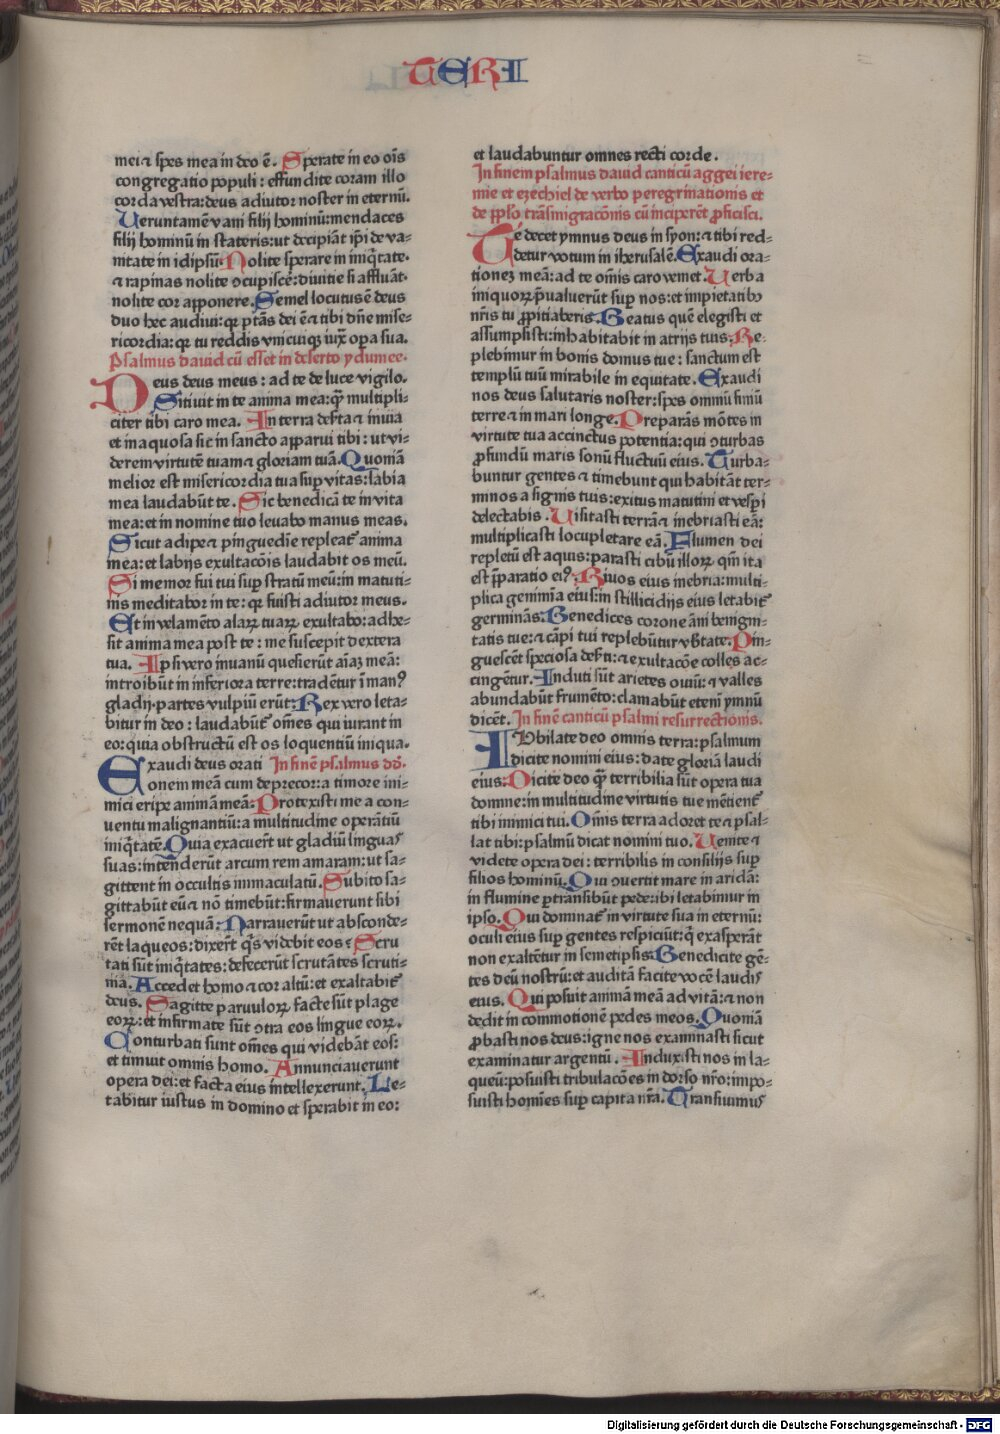 TERI
mei ⁊ spes mea in deo ē. Sperate in eo oīs
congregatio populi : effundite coram illo
corda vestra: deus adiutor noster in eternū.
Veruntamē vani filij hominū: mendaces
filij hominū in stateris: ut decipiāt ip̄i de va-
nitate in idipsū. Nolite sperare in iniq̄tate.
⁊ rapinas nolite ɔcupiscē: divitie si affluāt.
nolite cor apponere. Semel locutus ē deus
duo hec audivi: qꝛ ptās dei ē ⁊ tibi dn̄e mise-
ricordia: qꝛ tu reddis vnicuiqꝫ iux̄ oꝑa sua.
Psalmus dauid cū esset in deserto ydumee.
Deus deus meus : ad te de luce vigilo.
Sitiuit in te anima mea: qꝫ multipli-
citer tibi caro mea. In terra deẜta ⁊ inuia
et inaquosa sic in sancto apparui tibi : ut vi-
derem virtutē tuam ⁊ gloriam tuā. Quoniā
melior est misericordia tua suꝑ vitas: labia
mea laudabūt te. Sic benedicā te in vita
mea: et in nomine tuo levabo manus meas.
Sicut adipe ⁊ pīnguedīe repleat᷑ anima
mea: et labijs exultacōis laudabit os meū.
Si memor fui tui suꝑ stratū meū: in matuti-
nis meditabor in te: qꝛ fuisti adiutor meus.
Et in velamēto alaꝝ tuaꝝ exultabo: adhe-
sit anima mea post te : me suscepit dextera
tua. Ipsi vero inuanū quesierūt aīaꝫ meā:
introibūt in inferiora terre: tradētur ī manꝰ
gladij. partes vulpiū erūt: Rex vero leta-
bitur in deo : laudabūt᷑ om̄es qui iurant in
eo: quia obstructū est os loquentiū iniqua.
Exaudi deus orati In finē psalmus dd̄.
onem meā cum deprecor: a timore ini-
mici eripe animā meā: Protexisti me a con-
ventu malignantiū: a multitudine operātiū
iniq̄tatē. Quia exacuer̄t ut gladiū linguas
suas: intenderūt arcum rem amaram: ut sa-
gittent in occultis immaculatū. Subito sa-
gittabūt eū ⁊ nō timebūt: firmauerunt sibi
sermonē nequā: Narrauerūt ut absconde-
rēt laqueos: dixer̄t q̄s videbit eos: Scru
tati sūt iniq̄tates: defecerūt scrutātes scruti-
nia. Accedet homo ⁊ cor altū: et exaltabit᷑
deus. Sagitte paruuloꝝ facte sūt plage
eoꝝ: et infirmate sūt ɔtra eos lingue eoꝝ.
Conturbati sunt om̄es qui videbāt eos:
et timuit omnis homo. Annunciauerunt
opera dei: et facta eius intellexerunt. Le-
tabitur iustus in domino et sperabit in eo:
et laudabuntur omnes recti corde.
In finem psalmus dauid canticū aggei iere-
mie et ezechiel de verbo peregrinationis et
de pplo trāsmigracōnis cū inciperēt ꝓficisci.
Te decet ymnus deus in syon: ⁊ tibi red-
detur votum in iherusalē. Exaudi ora-
tionez meā: ad te om̄is caro veniet. Verba
iniquoꝝ p̄ualuerūt suꝑ nos: et impietatibꝫ
nr̄is tu ꝓpitiaberis. Beatus quē elegisti et
assumpsisti: inhabitabit in atrijs tuis. Re-
plebimur in bonis domus tue : sanctum est
templū tuū mirabile in equitate. Exaudi
nos deus salutaris noster: spes omniū finiū
terre ⁊ in mari longe. Preparās mōtes in
virtute tua accinctus potentia: qui ɔturbas
ꝓfundū maris sonū fluctuū eius. Turba-
buntur gentes ⁊ timebunt qui habitāt ter-
minos a signis tuis: exitus matutini et vesꝑi
delectabis. Visitasti terrā ⁊ inebriasti eā:
multiplicasti locupletare eā. Flumen dei
repletū est aquis: parasti cibū illoꝝ qm̄ ita
est p̄paratio eiꝰ. Riuos eius inebria: multi-
plica genimīa eius: in stillicidijs eius letabit᷑
germināns. Benedices corone āni benigni-
tatis tue: ⁊ cāpi tui replebūtur vb̄tate. Pin-
guescēt speciosa deẜti: ⁊ exultacōe colles ac-
cingētur. Induti sūt arietes ouiū: ⁊ valles
abundabūt frumēto: clamabūt etenī ymnū
dicēt. In finē canticū psalmi resurrectionis.
IUbilate deo omnis terra: psalmum
dicite nomini eius: date gloriā laudi
eius: Dicite deo qꝫ terribilia sūt opera tua
domine: in multitudine virtutis tue mētient᷑
tibi inimici tui. Om̄is terra adoret te ⁊ psal-
lat tibi: psalmū dicat nomini tuo. Venite ⁊
videte opera dei : terribilis in consilijs suꝑ
filios hominū. Qui ɔvertit mare in aridā:
in flumine ꝑtransibūt pede: ibi letabimur in
ipso. Qui dominat᷑ in virtute sua in eternū:
oculi eius suꝑ gentes respiciūt: q̄ exasperāt
non exaltētur in semetipsis. Benedicite gē-
tes deū nostrū: et auditā facite vocē laudis
eius. Qui posuit animā meā ad vitā: ⁊ non
dedit in commotionē pedes meos. Quoniā
ꝓbasti nos deus: igne nos examinasti sicut
examinatur argentū. Induxisti nos in la-
queū: posuisti tribulacōes in dorso nr̄o: impo-
suisti homīes suꝑ capita nr̄a. Transiuimus
Digitalisierung gefördert durch die Deutsche Forschungsgemeinschaft - DFG